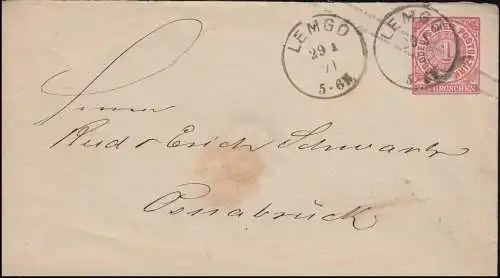 LEMGO
29 1
71
5-6N.
LEMGO
5-6N.
NORDDEUTSCHER POSTBEZIRK
1
GROSCHEN
Herren
Rud & Erich Schwartz
Osnabrück